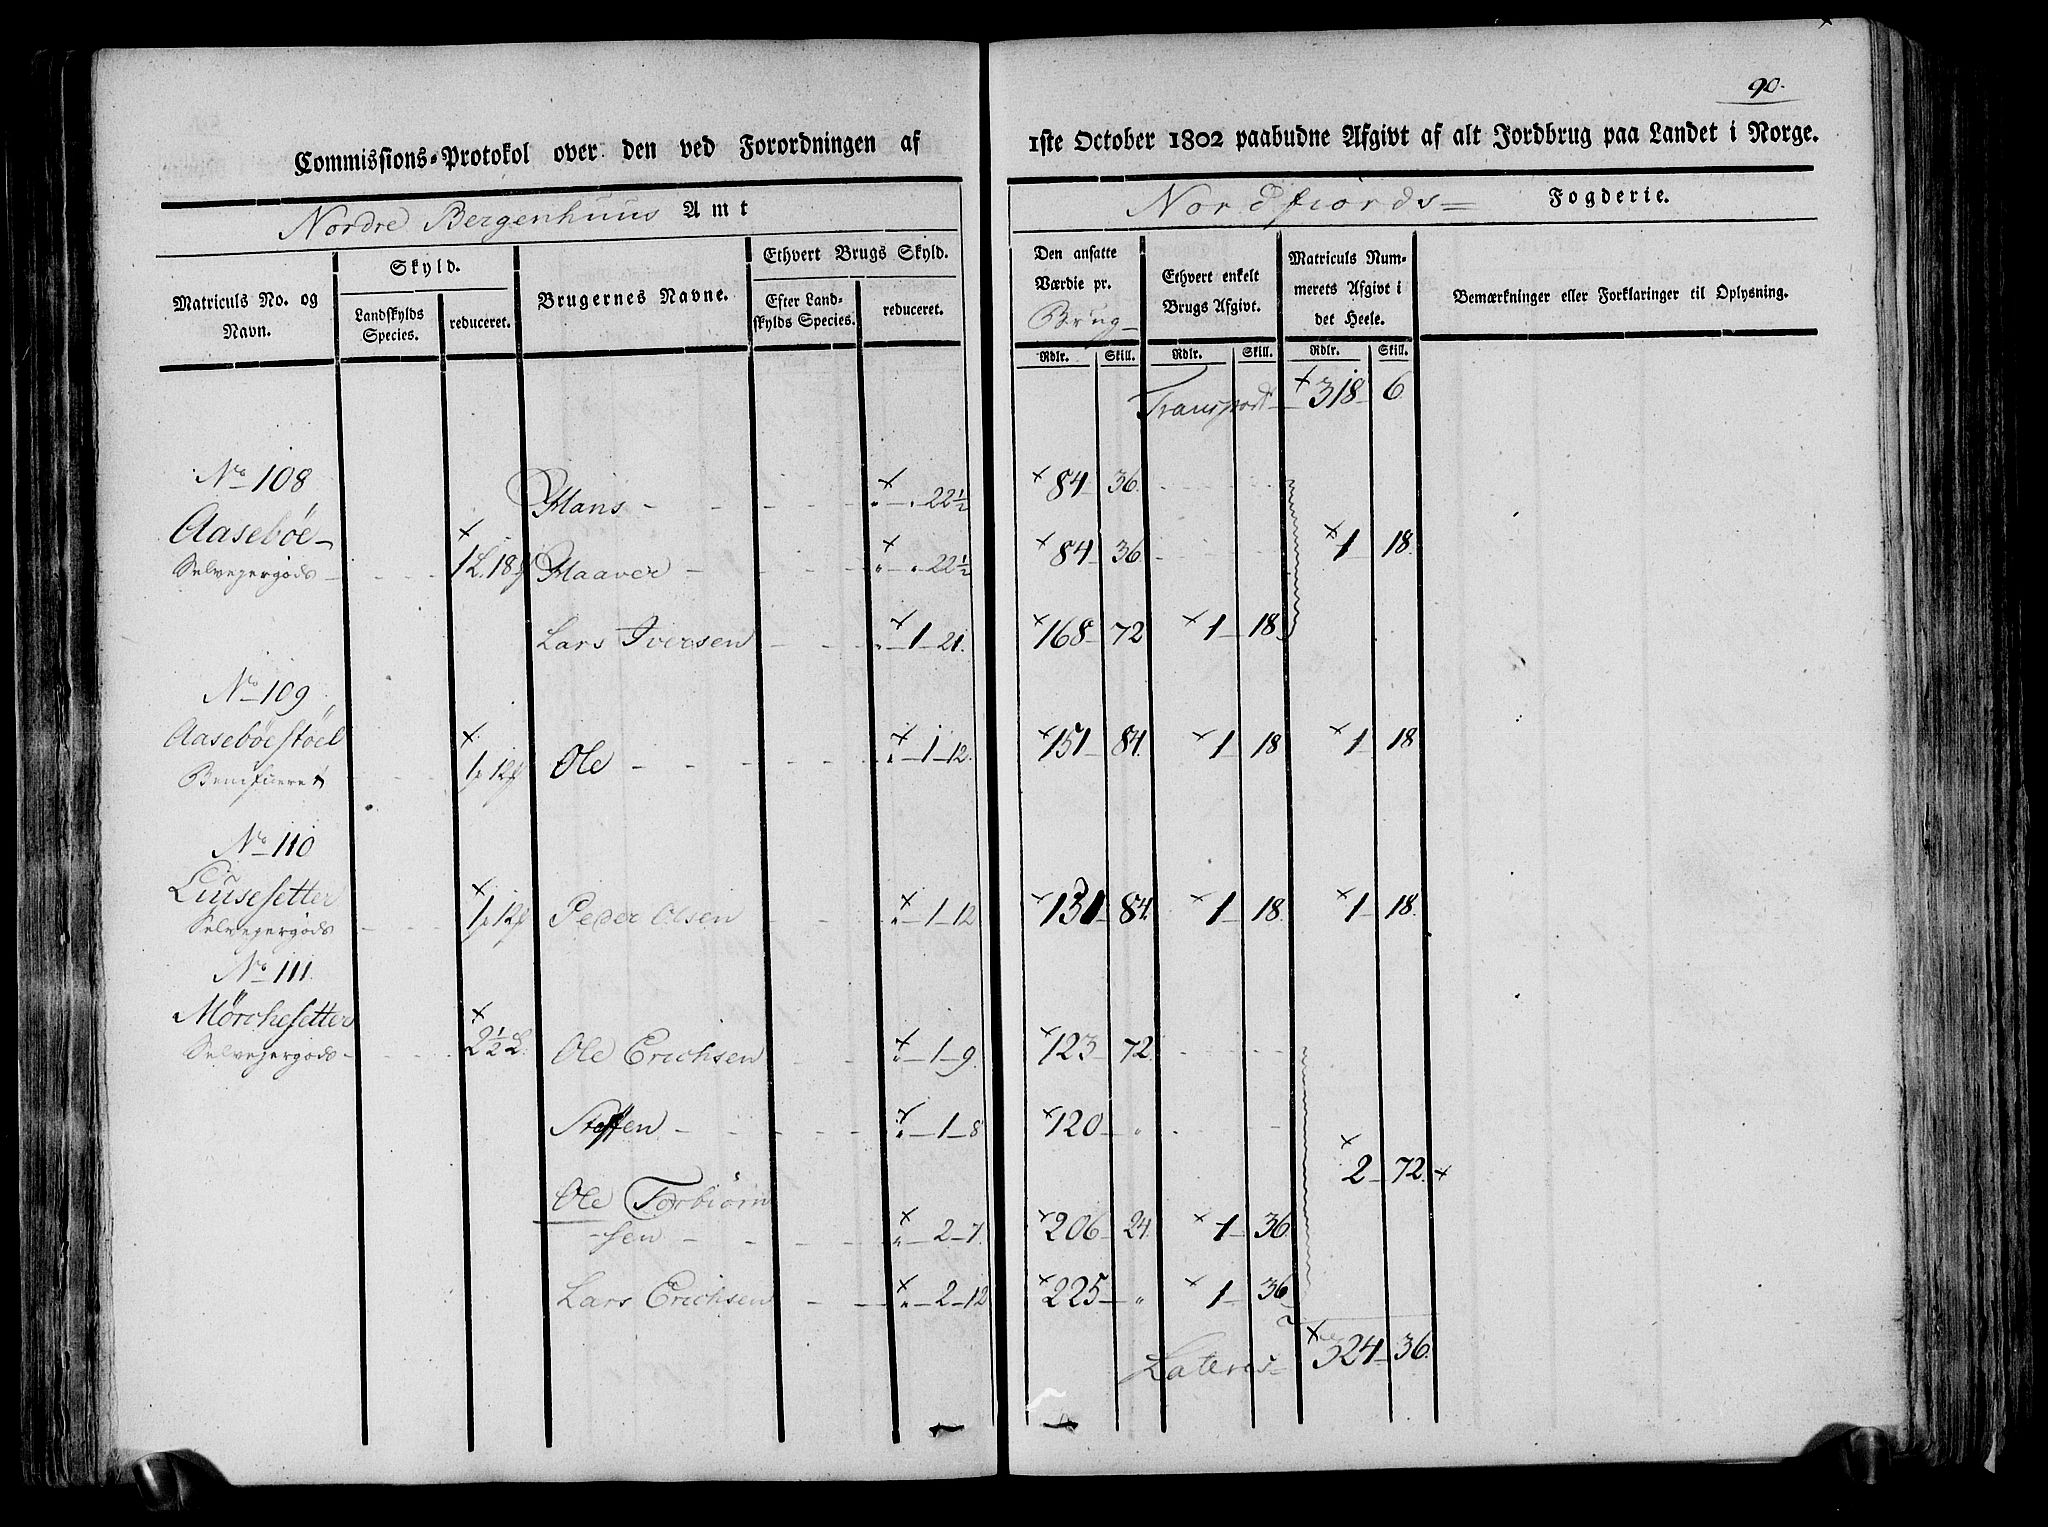 90.
Commissions-Protokol over den ved Forordningen af 1ste October 1802 paabudne Afgivt af alt Jordbrug paa Landet i Norge.
Nordre Bergenhuus Amt Nordfiords Fogderie.
Matriculs No. og Navn. Skyld. Landskylds Species. reduceret. Brugernes Navne. Ethvert Brugs Skyld. Efter Landskylds Species. reduceret. Den ansatte Værdie pr. Brug Ethvert enkelt Brugs Afgivt. Matriculs Nummerets Afgivt i det Heele. Bemærkninger eller Forklaringer til Oplysning.
Rdlr. Skill. Rdlr. Skill. Rdlr. Skill.
Transport 318 6
No 108 Hans 22½ 84 36
Aasebøe 1 18
Selvejergods 1 L. 18 Haaver 22½ 84 36
Lars Iversen 1 21. 168 72 1 18
No 109
Aasebøestøel 1 12 Ole 1 12. 151 84 1 18 1 18
Beneficeret
No 110
Liusesetter 1 12 Peder Olsen 1 12 131 84. 1 18. 1 18.
Selvejergods
No 111.
Mörchesetter 2½ L. Ole Erichsen 1 9. 123 72
Selvejergods
Steffen 1 8 120 "
2 72
Ole Torbiörn
sen 2 7. 206 24. 1 36
Lars Erichsen 2 12 225 " 1 36
Lateris 324 36.